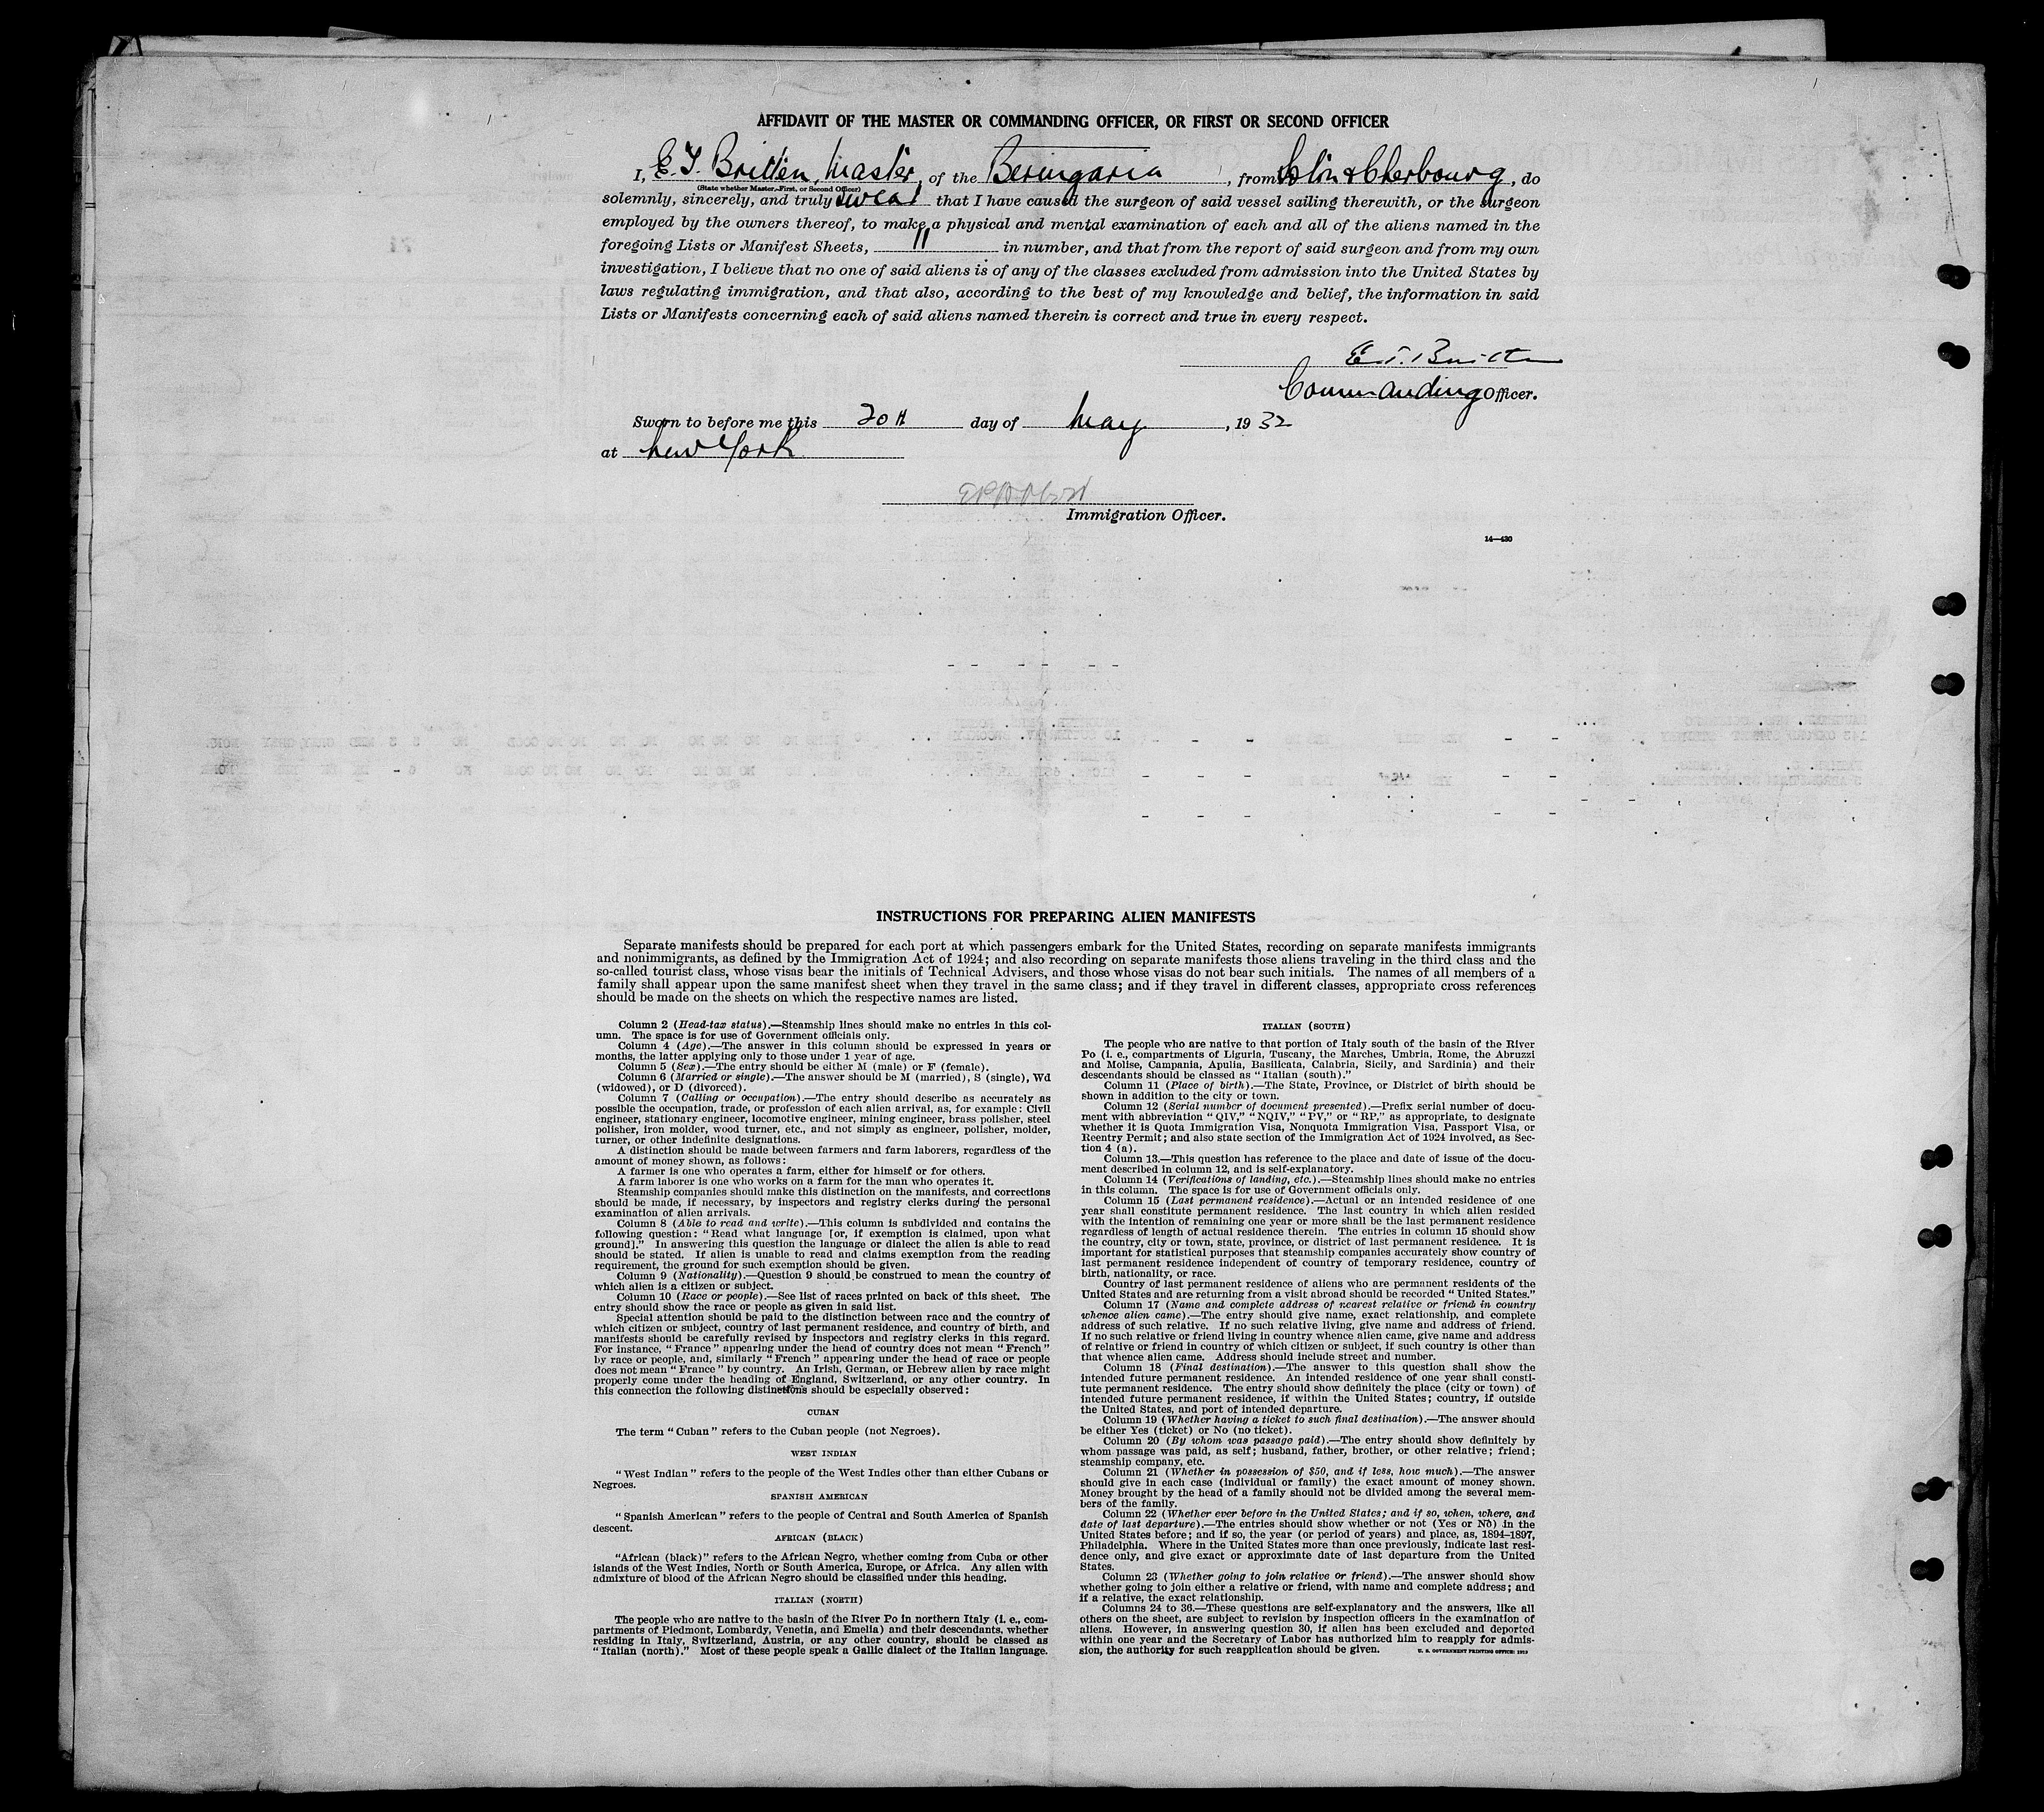 AFFIDAVIT OF THE MASTER OR COMMANDING OFFICER, OR FIRST OR SECOND OFFICER
I, E. T. Britten, Master, of the Berengaria, from Soton & Cherbourg, do
(State whether Master, First, or Second Officer)
solemnly, sincerely, and truly swear that I have caused the surgeon of said vessel sailing therewith, or the surgeon
employed by the owners thereof, to make a physical and mental examination of each and all of the aliens named in the
foregoing Lists or Manifest Sheets, 11 in number, and that from the report of said surgeon and from my own
investigation, I believe that no one of said aliens is of any of the classes excluded from admission into the United States by
laws regulating immigration, and that also, according to the best of my knowledge and belief, the information in said
Lists or Manifests concerning each of said aliens named therein is correct and true in every respect.
E. T. Britten
Commanding Officer.
Sworn to before me this 20th day of May, 1932
at New York
Immigration Officer.
14—430
INSTRUCTIONS FOR PREPARING ALIEN MANIFESTS
Separate manifests should be prepared for each port at which passengers embark for the United States, recording on separate manifests immigrants
and nonimmigrants, as defined by the Immigration Act of 1924; and also recording on separate manifests those aliens traveling in the third class and the
so-called tourist class, whose visas bear the initials of Technical Advisers, and those whose visas do not bear such initials. The names of all members of a
family shall appear upon the same manifest sheet when they travel in the same class; and if they travel in different classes, appropriate cross references
should be made on the sheets on which the respective names are listed.
Column 2 (Head-tax status).—Steamship lines should make no entries in this col-
umn. The space is for use of Government officials only.
Column 4 (Age).—The answer in this column should be expressed in years or
months, the latter applying only to those under 1 year of age.
Column 5 (Sex).—The entry should be either M (male) or F (female).
Column 6 (Married or single).—The answer should be M (married), S (single), Wd
(widowed), or D (divorced).
Column 7 (Calling or occupation).—The entry should describe as accurately as
possible the occupation, trade, or profession of each alien arrival, as, for example: Civil
engineer, stationary engineer, locomotive engineer, mining engineer, brass polisher, steel
polisher, iron molder, wood turner, etc., and not simply as engineer, polisher, molder,
turner, or other indefinite designations.
A distinction should be made between farmers and farm laborers, regardless of the
amount of money shown, as follows:
A farmer is one who operates a farm, either for himself or for others.
A farm laborer is one who works on a farm for the man who operates it.
Steamship companies should make this distinction on the manifests, and corrections
should be made, if necessary, by inspectors and registry clerks during the personal
examination of alien arrivals.
Column 8 (Able to read and write).—This column is subdivided and contains the
following question: "Read what language [or, if exemption is claimed, upon what
ground]." In answering this question the language or dialect the alien is able to read
should be stated. If alien is unable to read and claims exemption from the reading
requirement, the ground for such exemption should be given.
Column 9 (Nationality).—Question 9 should be construed to mean the country of
which alien is a citizen or subject.
Column 10 (Race or people).—See list of races printed on back of this sheet. The
entry should show the race or people as given in said list.
Special attention should be paid to the distinction between race and the country of
which citizen or subject, country of last permanent residence, and country of birth, and
manifests should be carefully revised by inspectors and registry clerks in this regard.
For instance, "France" appearing under the head of country does not mean "French"
by race or people, and, similarly "French" appearing under the head of race or people
does not mean "France" by country. An Irish, German, or Hebrew alien by race might
properly come under the heading of England, Switzerland, or any other country. In
this connection the following distinctions should be especially observed:
CUBAN
The term "Cuban" refers to the Cuban people (not Negroes).
WEST INDIAN
"West Indian" refers to the people of the West Indies other than either Cubans or
Negroes.
SPANISH AMERICAN
"Spanish American" refers to the people of Central and South America of Spanish
descent.
AFRICAN (BLACK)
"African (black)" refers to the African Negro, whether coming from Cuba or other
islands of the West Indies, North or South America, Europe, or Africa. Any alien with
admixture of blood of the African Negro should be classified under this heading.
ITALIAN (NORTH)
The people who are native to the basin of the River Po in northern Italy (i. e., com-
partments of Piedmont, Lombardy, Venetia, and Emelia) and their descendants, whether
residing in Italy, Switzerland, Austria, or any other country, should be classed as
"Italian (north)." Most of these people speak a Gallic dialect of the Italian language.
ITALIAN (SOUTH)
The people who are native to that portion of Italy south of the basin of the River
Po (i. e., compartments of Liguria, Tuscany, the Marches, Umbria, Rome, the Abruzzi
and Molise, Campania, Apulia, Basilicata, Calabria, Sicily, and Sardinia) and their
descendants should be classed as "Italian (south)."
Column 11 (Place of birth).—The State, Province, or District of birth should be
shown in addition to the city or town.
Column 12 (Serial number of document presented).—Prefix serial number of docu-
ment with abbreviation "QIV," "NQIV," "PV," or "RP," as appropriate, to designate
whether it is Quota Immigration Visa, Nonquota Immigration Visa, Passport Visa, or
Reentry Permit; and also state section of the Immigration Act of 1924 involved, as Sec-
tion 4 (a).
Column 13.—This question has reference to the place and date of issue of the docu-
ment described in column 12, and is self-explanatory.
Column 14 (Verifications of landing, etc.).—Steamship lines should make no entries
in this column. The space is for use of Government officials only.
Column 15 (Last permanent residence).—Actual or an intended residence of one
year shall constitute permanent residence. The last country in which alien resided
with the intention of remaining one year or more shall be the last permanent residence
regardless of length of actual residence therein. The entries in column 15 should show
the country, city or town, state, province, or district of last permanent residence. It is
important for statistical purposes that steamship companies accurately show country of
last permanent residence independent of country of temporary residence, country of
birth, nationality, or race.
Country of last permanent residence of aliens who are permanent residents of the
United States and are returning from a visit abroad should be recorded "United States."
Column 17 (Name and complete address of nearest relative or friend in country
whence alien came).—The entry should give name, exact relationship, and complete
address of such relative. If no such relative living, give name and address of friend.
If no such relative or friend living in country whence alien came, give name and address
of relative or friend in country of which citizen or subject, if such country is other than
that whence alien came. Address should include street and number.
Column 18 (Final destination).—The answer to this question shall show the
intended future permanent residence. An intended residence of one year shall consti-
tute permanent residence. The entry should show definitely the place (city or town) of
intended future permanent residence, if within the United States; country, if outside
the United States, and port of intended departure.
Column 19 (Whether having a ticket to such final destination).—The answer should
be either Yes (ticket) or No (no ticket).
Column 20 (By whom was passage paid).—The entry should show definitely by
whom passage was paid, as self; husband, father, brother, or other relative; friend;
steamship company, etc.
Column 21 (Whether in possession of $50, and if less, how much).—The answer
should give in each case (individual or family) the exact amount of money shown.
Money brought by the head of a family should not be divided among the several mem-
bers of the family.
Column 22 (Whether ever before in the United States; and if so, when, where, and
date of last departure).—The entries should show whether or not (Yes or No) in the
United States before; and if so, the year (or period of years) and place, as, 1894–1897,
Philadelphia. Where in the United States more than once previously, indicate last resi-
dence only, and give exact or approximate date of last departure from the United
States.
Column 23 (Whether going to join relative or friend).—The answer should show
whether going to join either a relative or friend, with name and complete address; and
if a relative, the exact relationship.
Columns 24 to 36.—These questions are self-explanatory and the answers, like all
others on the sheet, are subject to revision by inspection officers in the examination of
aliens. However, in answering question 30, if alien has been excluded and deported
within one year and the Secretary of Labor has authorized him to reapply for admis-
sion, the authority for such reapplication should be given.
U. S. GOVERNMENT PRINTING OFFICE